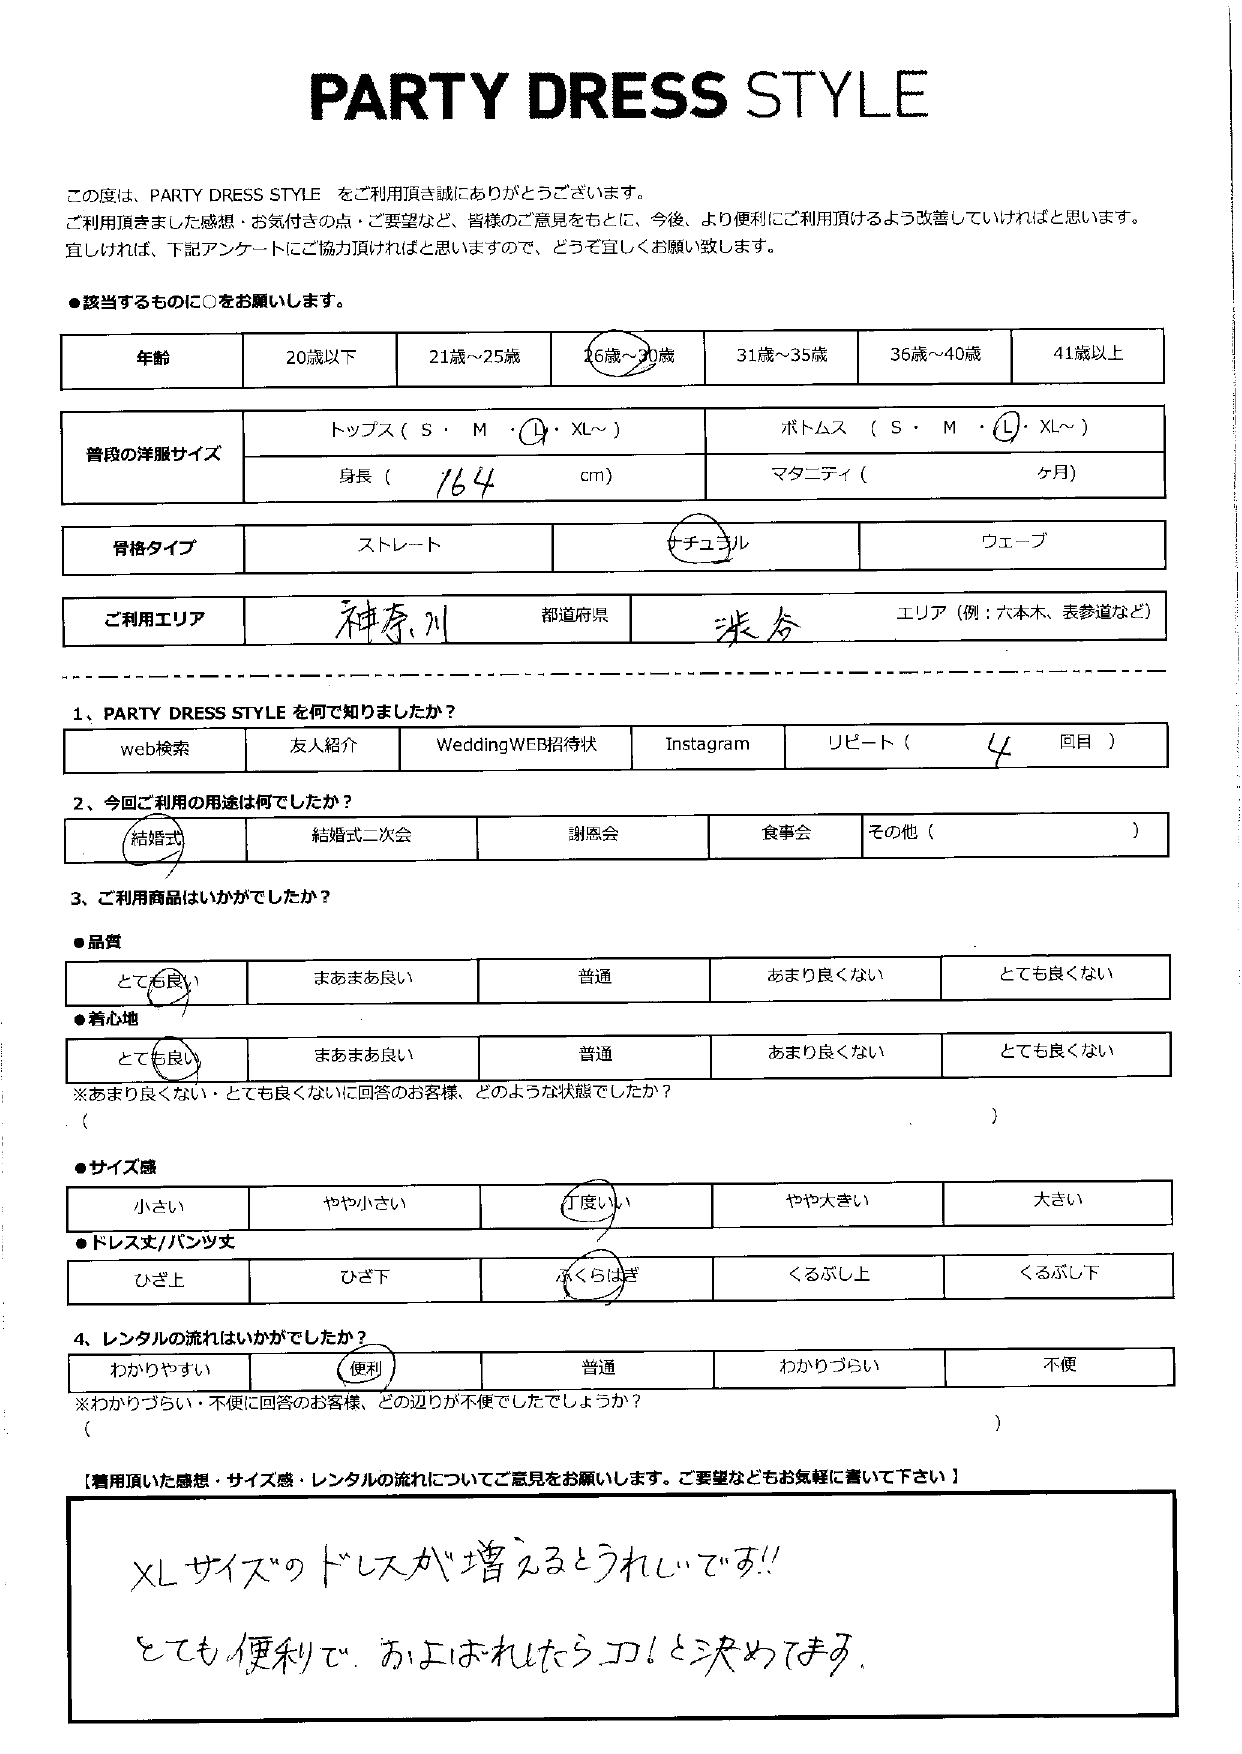 PARTY DRESS STYLE
この度は、PARTY DRESS STYLE　をご利用頂き誠にありがとうございます。
ご利用頂きました感想・お気付きの点・ご要望など、皆様のご意見をもとに、今後、より便利にご利用頂けるよう改善していければと思います。
宜しければ、下記アンケートにご協力頂ければと思いますので、どうぞ宜しくお願い致します。
●該当するものに○をお願いします。
年齢 20歳以下 21歳～25歳 26歳～30歳 31歳～35歳 36歳～40歳 41歳以上
普段の洋服サイズ トップス ( S ・ M ・ L ・ XL～ ) ボトムス ( S ・ M ・ L ・ XL～ )
身長 ( 164 cm) マタニティ ( ケ月)
骨格タイプ ストレート ナチュラル ウェーブ
ご利用エリア 神奈川 都道府県 渋谷 エリア（例：六本木、表参道など）
1、PARTY DRESS STYLE を何で知りましたか？
web検索 友人紹介 WeddingWEB招待状 Instagram リピート ( 4 回目 )
2、今回ご利用の用途は何でしたか？
結婚式 結婚式二次会 謝恩会 食事会 その他 ( )
3、ご利用商品はいかがでしたか？
●品質
とても良い まあまあ良い 普通 あまり良くない とても良くない
●着心地
とても良い まあまあ良い 普通 あまり良くない とても良くない
※あまり良くない・とても良くないに回答のお客様、どのような状態でしたか？
( )
●サイズ感
小さい やや小さい 丁度いい やや大きい 大きい
●ドレス丈/パンツ丈
ひざ上 ひざ下 ふくらはぎ くるぶし上 くるぶし下
4、レンタルの流れはいかがでしたか？
わかりやすい 便利 普通 わかりづらい 不便
※わかりづらい・不便に回答のお客様、どの辺りが不便でしたでしょうか？
( )
【着用頂いた感想・サイズ感・レンタルの流れについてご意見をお願いします。ご要望などもお気軽に書いて下さい】
XLサイズのドレスが増えるとうれしいです!!
とても便利で、およばれしたらココ!と決めてます。